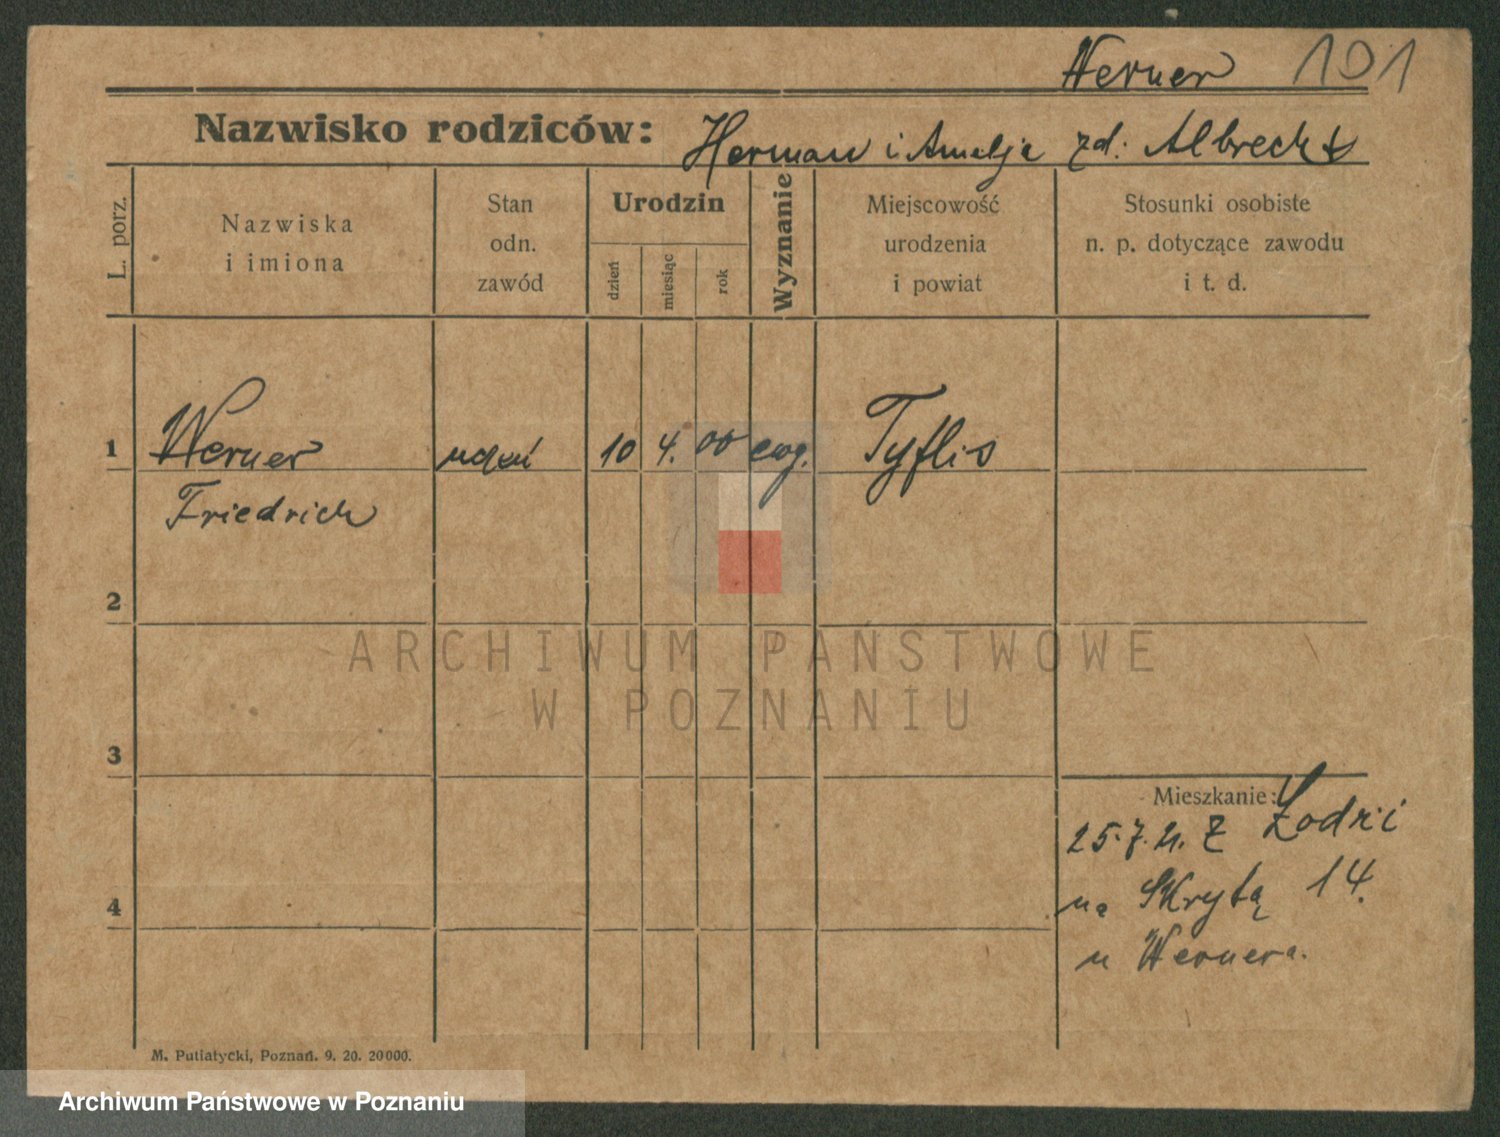 Werner 101
Nazwisko rodziców: Herman i Amalja zd: Albrecht
L. porz.
Nazwiska
i imiona
Stan
odn.
zawód
Urodzin
dzień
miesiąc
rok
Wyznanie
Miejscowość
urodzenia
i powiat
Stosunki osobiste
n. p. dotyczące zawodu
i t. d.
1 Werner 10 4. 00 ewg. Tyflis
Friedrich
2
ARCHIWUM PAŃSTWOWE
W POZNANIU
3
Mieszkanie:
25.7.21. Z Łodzi
na Skrytą 14.
4
u Wernera.
M. Putiatycki, Poznań. 9. 20. 20000.
Archiwum Państwowe w Poznaniu